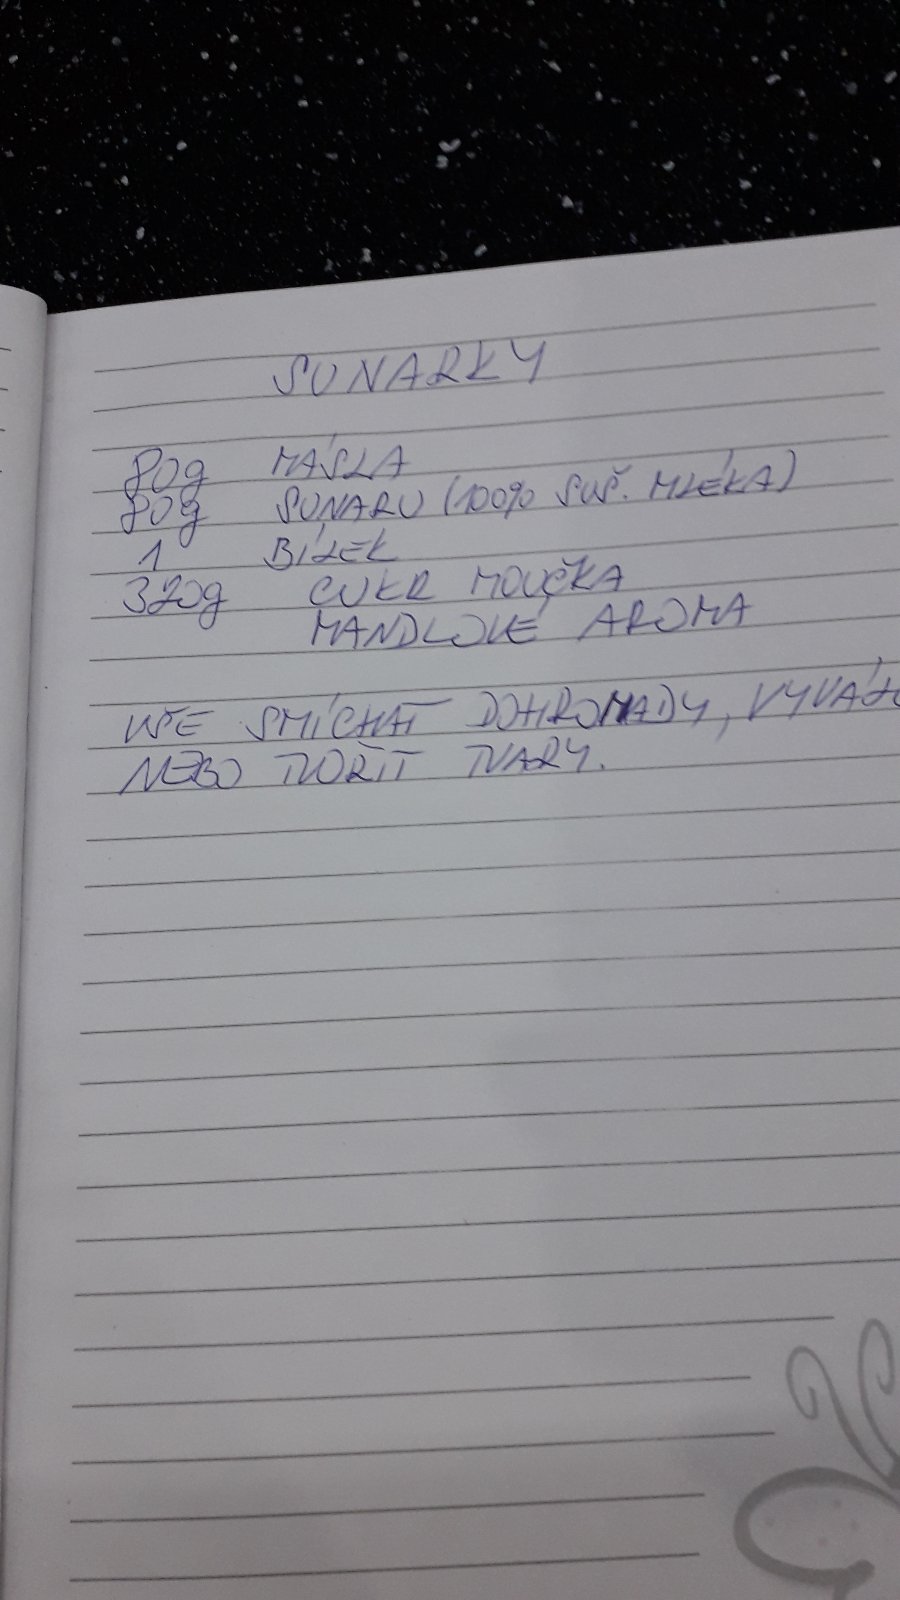 SUNARKY
80g MÁSLA
80g SUNARU (100% SUŠ. MLÉKA)
1 BÍLEK
320g CUKR MOUČKA
MANDLOVÉ AROMA
VŠE SMÍCHAT DOHROMADY,
NEBO TVOŘIT TVARY.